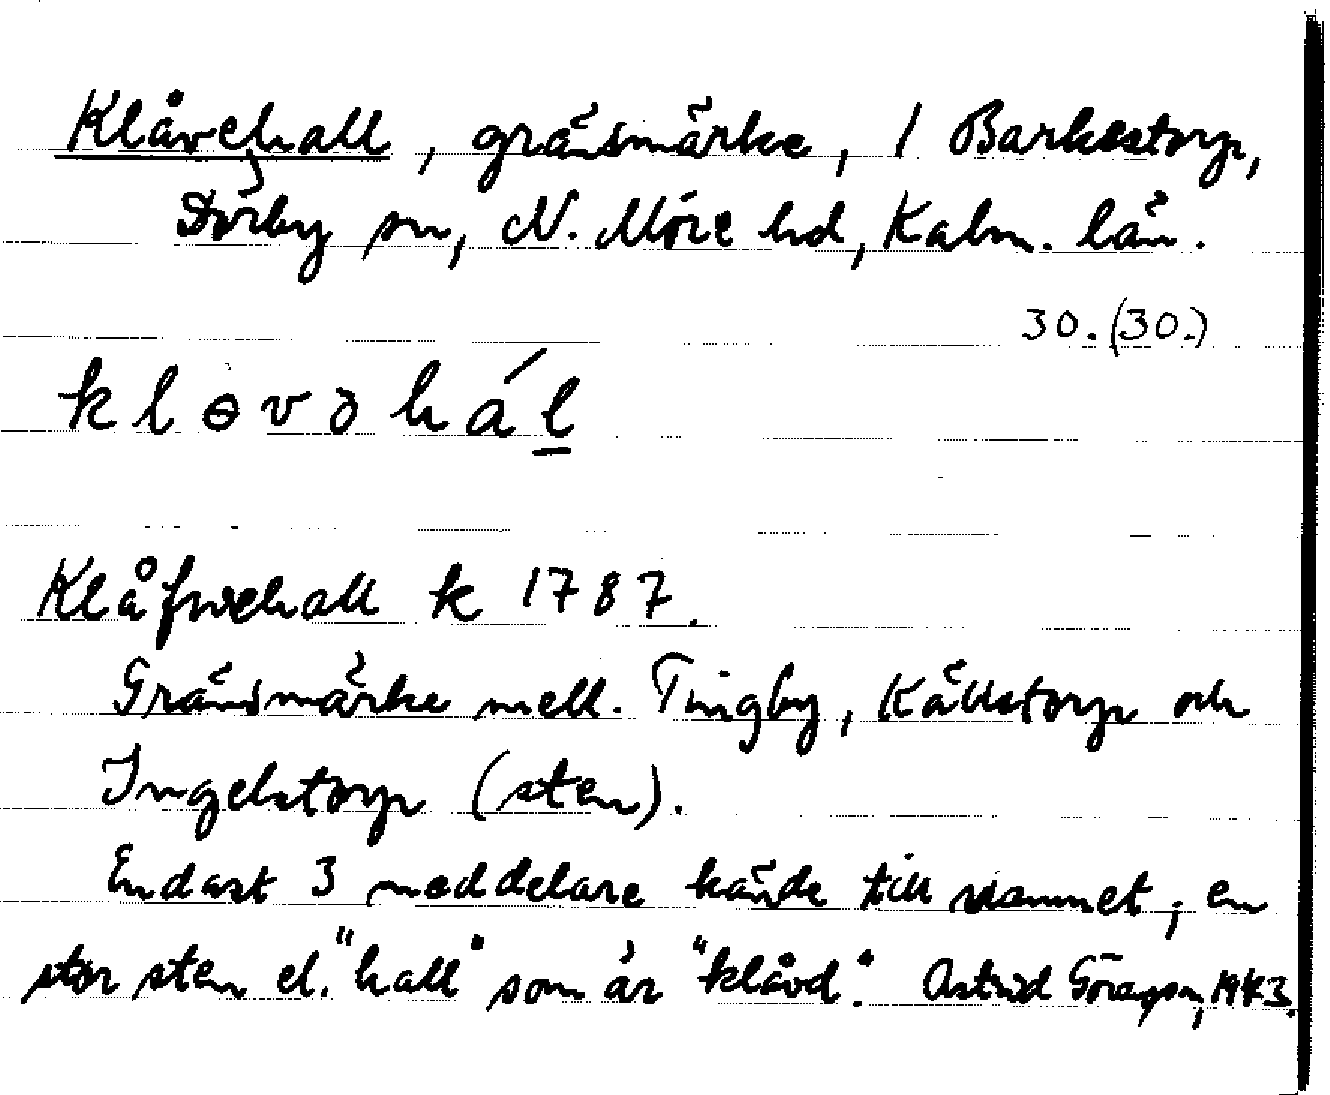 Klåvehall, gränsmärke, 1 Barkestorp,
Dörby sn, N. Möre hd, Kalm. län.
30. (30.)
klɵvəhál
Klåfwehall k 1787.
Gränsmärke mell. Tingby, Källstorp och
Ingelstorp (sten).
Endast 3 meddelare kände till namnet, en
stor sten el. "hall" som är "klåvd". Astrid Göransson, 1943.